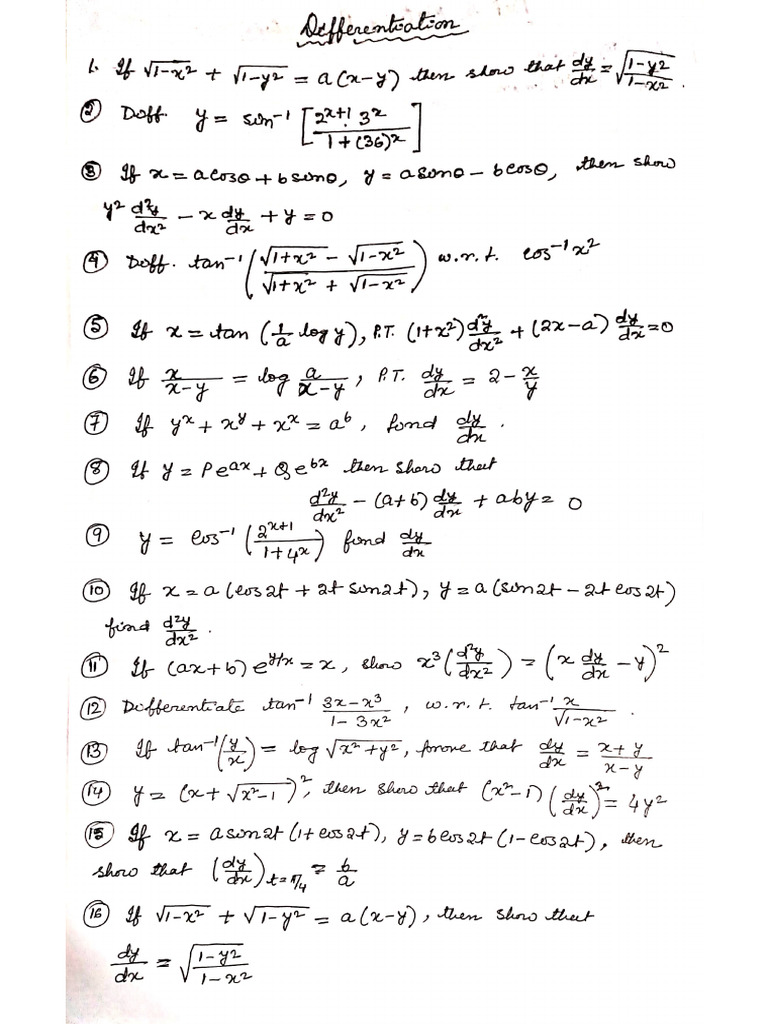 Differentiation
1. If √(1-x²) + √(1-y²) = a(x-y) then show that dy/dx = √((1-y²)/(1-x²)).
② Diff. y = sin⁻¹ [2ˣ⁺¹. 3ˣ / 1+(36)ˣ]
③ If x = a cosθ + b sinθ, y = a sinθ - b cosθ, then show
y² d²y/dx² - x dy/dx + y = 0
④ Diff. tan⁻¹ ((√(1+x²) - √(1-x²)) / (√(1+x²) + √(1-x²))) w.r.t. cos⁻¹x²
⑤ If x = tan (1/a log y), P.T. (1+x²) d²y/dx² + (2x-a) dy/dx = 0
⑥ If x/(x-y) = log a/(x-y), P.T. dy/dx = 2 - x/y
⑦ If yˣ + xʸ + xˣ = aᵇ, find dy/dx.
⑧ If y = Peᵃˣ + Qeᵇˣ then show that
d²y/dx² - (a+b) dy/dx + aby = 0
⑨ y = cos⁻¹ (2ˣ⁺¹ / 1+4ˣ) find dy/dx
⑩ If x = a (cos2t + 2t sin2t), y = a (sin2t - 2t cos2t)
find d²y/dx².
⑪ If (ax+b) e^(y/x) = x, show x³ (d²y/dx²) = (x dy/dx - y)²
⑫ Differentiate tan⁻¹ (3x-x³)/(1-3x²), w.r.t. tan⁻¹ x/√(1-x²).
⑬ If tan⁻¹(y/x) = log √(x²+y²), prove that dy/dx = (x+y)/(x-y)
⑭ y = (x + √(x²-1))², then show that (x²-1) (dy/dx)² = 4y²
⑮ If x = a sin2t (1+cos2t), y = b cos2t (1-cos2t), then
show that (dy/dx)t=π/4 = b/a
⑯ If √(1-x²) + √(1-y²) = a(x-y), then show that
dy/dx = √((1-y²)/(1-x²))